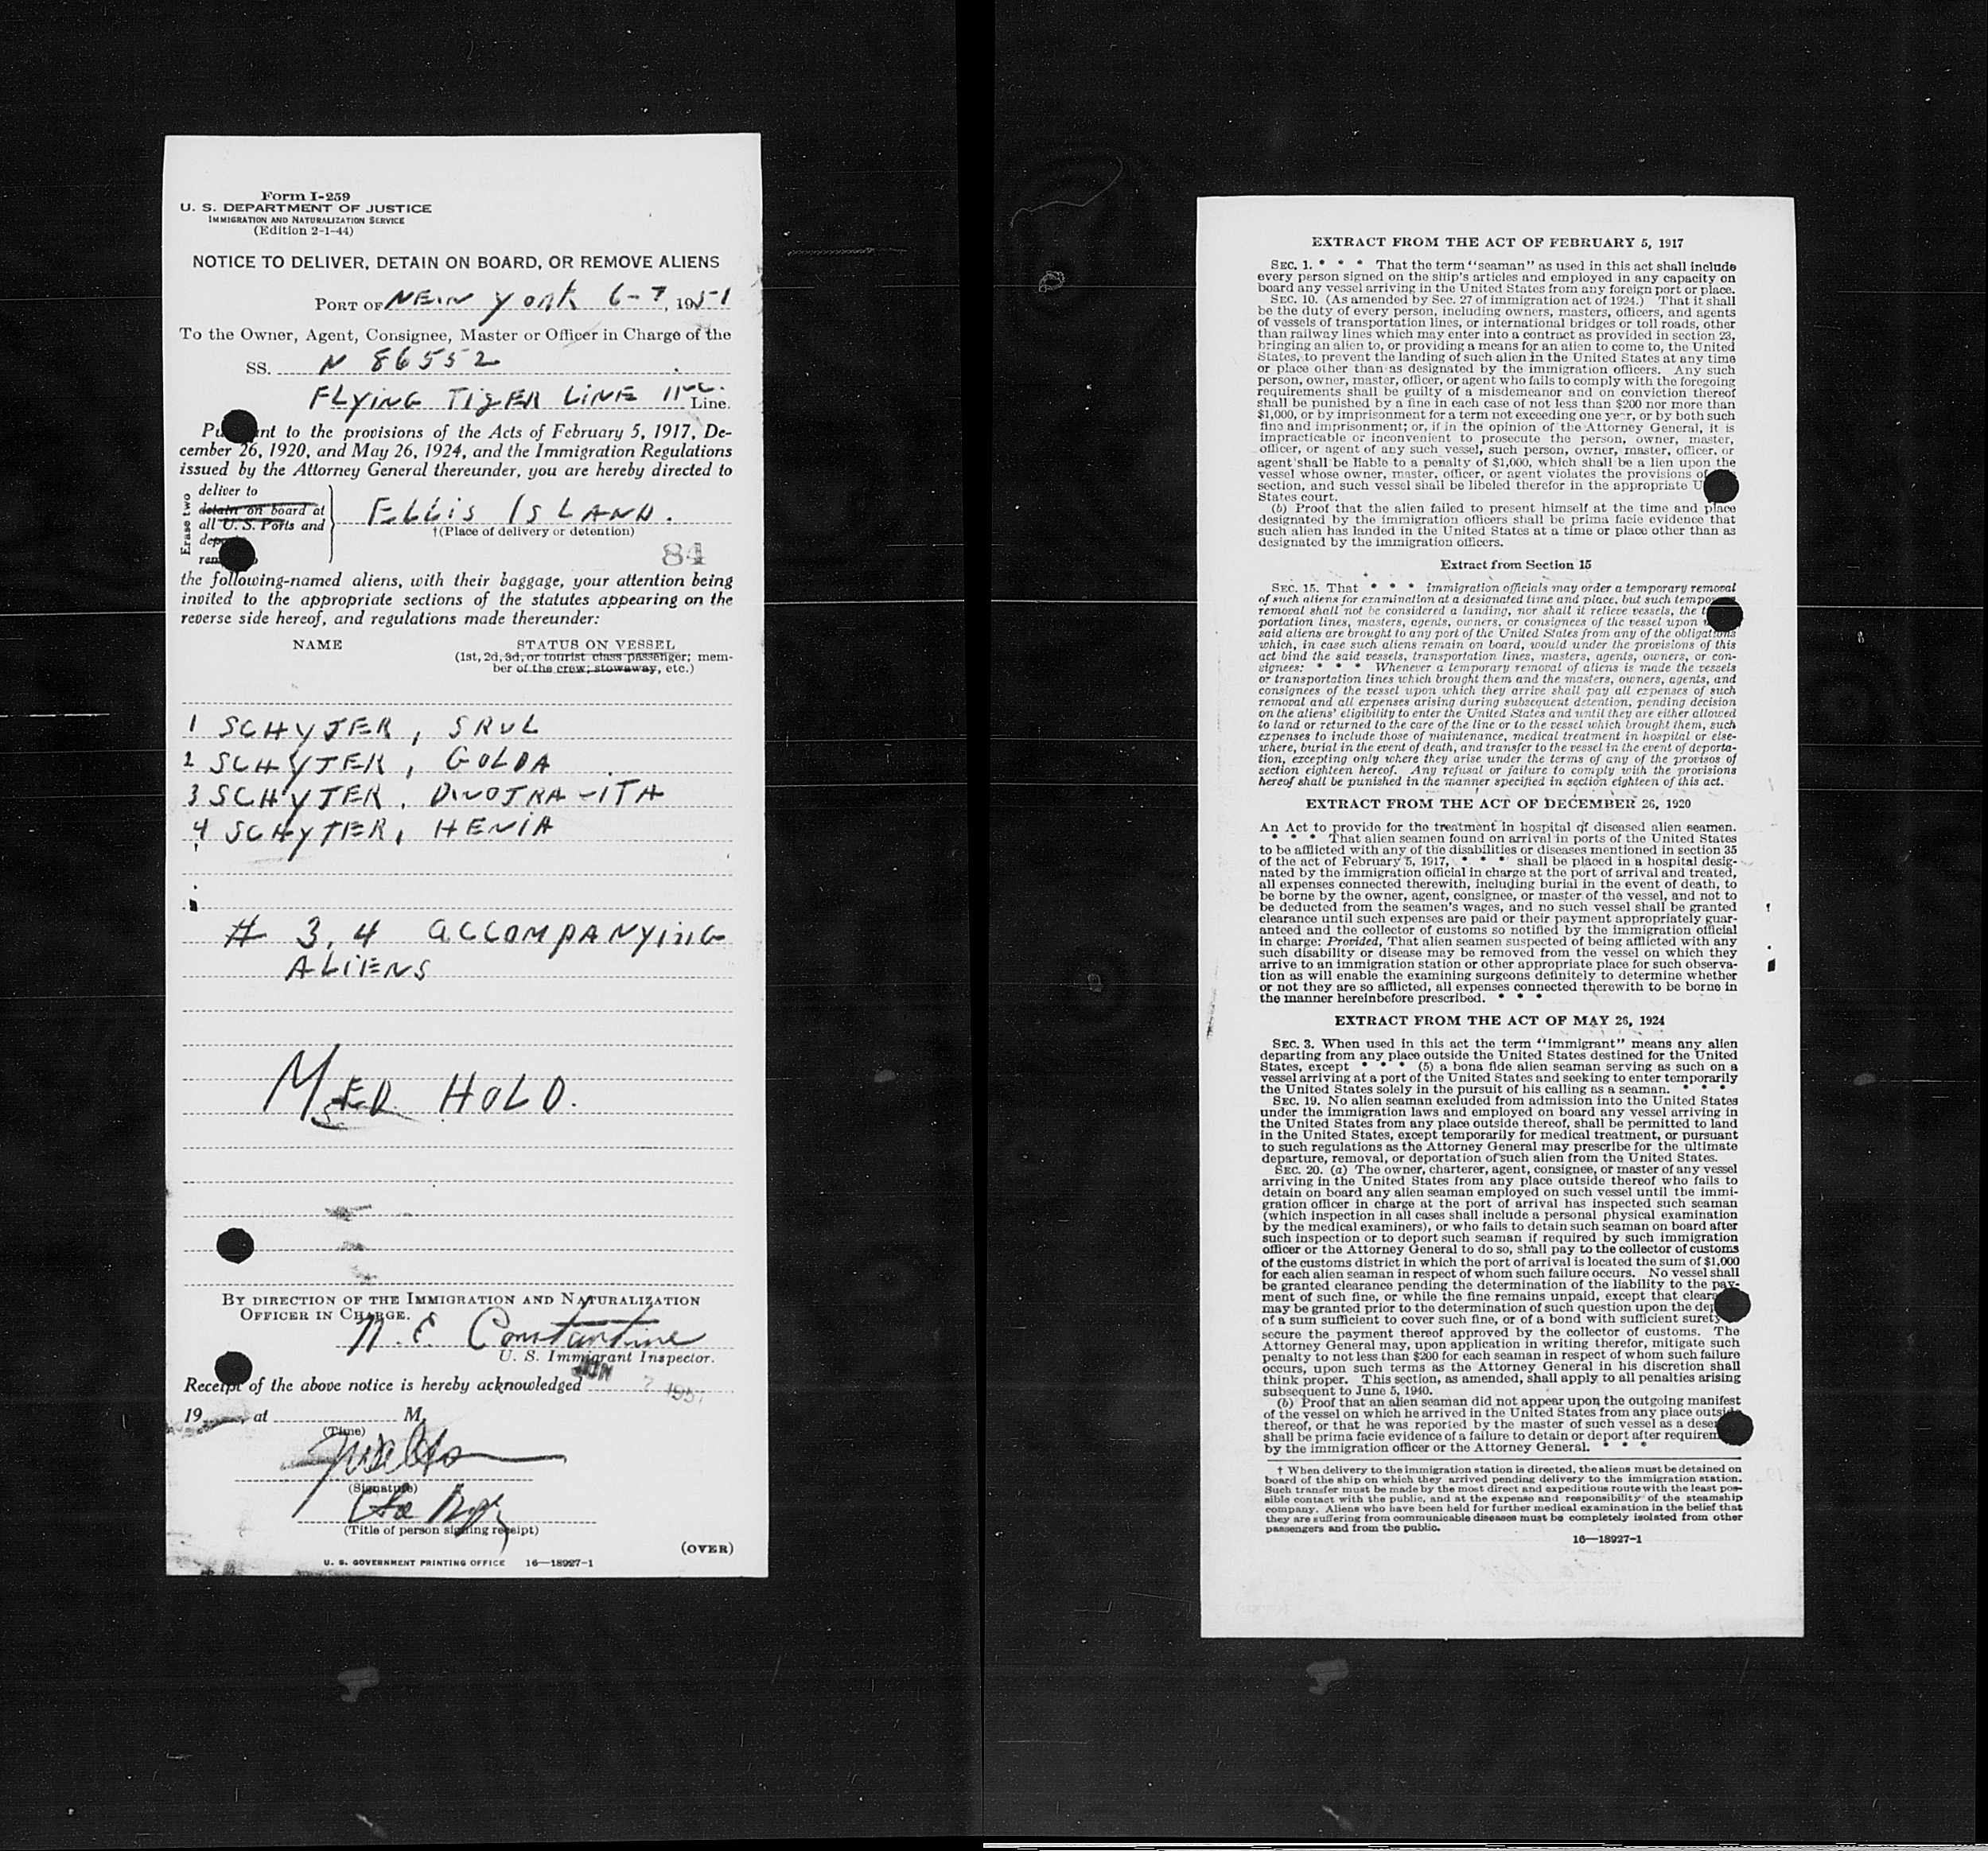 Form I-259
U. S. DEPARTMENT OF JUSTICE
IMMIGRATION AND NATURALIZATION SERVICE
(Edition 2-1-44)
NOTICE TO DELIVER, DETAIN ON BOARD, OR REMOVE ALIENS
PORT OF NEW YORK 6-7, 1951
To the Owner, Agent, Consignee, Master or Officer in Charge of the
SS. N 86552
FLYING TIGER LINE INC. Line.
to the provisions of the Acts of February 5, 1917, De-
cember 26, 1920, and May 26, 1924, and the Immigration Regulations
issued by the Attorney General thereunder, you are hereby directed to
Erase two
deliver to
detain on board at
all U. S. Ports and
ELLIS ISLAND.
†(Place of delivery or detention)
84
the following-named aliens, with their baggage, your attention being
invited to the appropriate sections of the statutes appearing on the
reverse side hereof, and regulations made thereunder:
NAME STATUS ON VESSEL
(1st, 2d, 3d, or tourist class passenger; mem-
ber of the crew; stowaway, etc.)
1 SCHYJER, SRUL
2 SCHYJER, GOLDA
3 SCHYJER,
4 SCHYJER, HENIA
# 3, 4 ACCOMPANYING
ALIENS
MED HOLD.
BY DIRECTION OF THE IMMIGRATION AND NATURALIZATION
OFFICER IN CHARGE.
N. E. Constantine
U. S. Immigrant Inspector.
Receipt of the above notice is hereby acknowledged JUN 7 1951
19 , at M.
(Time)
(Signature)
(Title of person signing receipt)
(OVER)
U. S. GOVERNMENT PRINTING OFFICE 16—18927-1
EXTRACT FROM THE ACT OF FEBRUARY 5, 1917
SEC. 1. * * * That the term "seaman" as used in this act shall include
every person signed on the ship's articles and employed in any capacity on
board any vessel arriving in the United States from any foreign port or place.
SEC. 10. (As amended by Sec. 27 of immigration act of 1924.) That it shall
be the duty of every person, including owners, masters, officers, and agents
of vessels of transportation lines, or international bridges or toll roads, other
than railway lines which may enter into a contract as provided in section 23,
bringing an alien to, or providing a means for an alien to come to, the United
States, to prevent the landing of such alien in the United States at any time
or place other than as designated by the immigration officers. Any such
person, owner, master, officer, or agent who fails to comply with the foregoing
requirements shall be guilty of a misdemeanor and on conviction thereof
shall be punished by a fine in each case of not less than $200 nor more than
$1,000, or by imprisonment for a term not exceeding one year, or by both such
fine and imprisonment; or, if in the opinion of the Attorney General, it is
impracticable or inconvenient to prosecute the person, owner, master,
officer, or agent of any such vessel, such person, owner, master, officer, or
agent shall be liable to a penalty of $1,000, which shall be a lien upon the
vessel whose owner, master, officer, or agent violates the provisions of
section, and such vessel shall be libeled therefor in the appropriate U
States court.
(b) Proof that the alien failed to present himself at the time and place
designated by the immigration officers shall be prima facie evidence that
such alien has landed in the United States at a time or place other than as
designated by the immigration officers.
Extract from Section 15
SEC. 15. That * * * immigration officials may order a temporary removal
of such aliens for examination at a designated time and place, but such temporary
removal shall not be considered a landing, nor shall it relieve vessels, the t
portation lines, masters, agents, owners, or consignees of the vessel upon
said aliens are brought to any port of the United States from any of the obligations
which, in case such aliens remain on board, would under the provisions of this
act bind the said vessels, transportation lines, masters, agents, owners, or con-
signees: * * * Whenever a temporary removal of aliens is made the vessels
or transportation lines which brought them and the masters, owners, agents, and
consignees of the vessel upon which they arrive shall pay all expenses of such
removal and all expenses arising during subsequent detention, pending decision
on the aliens' eligibility to enter the United States and until they are either allowed
to land or returned to the care of the line or to the vessel which brought them, such
expenses to include those of maintenance, medical treatment in hospital or else-
where, burial in the event of death, and transfer to the vessel in the event of deporta-
tion, excepting only where they arise under the terms of any of the provisos of
section eighteen hereof. Any refusal or failure to comply with the provisions
hereof shall be punished in the manner specified in section eighteen of this act.
EXTRACT FROM THE ACT OF DECEMBER 26, 1920
An Act to provide for the treatment in hospital of diseased alien seamen.
* * * That alien seamen found on arrival in ports of the United States
to be afflicted with any of the disabilities or diseases mentioned in section 35
of the act of February 5, 1917, * * * shall be placed in a hospital desig-
nated by the immigration official in charge at the port of arrival and treated,
all expenses connected therewith, including burial in the event of death, to
be borne by the owner, agent, consignee, or master of the vessel, and not to
be deducted from the seamen's wages, and no such vessel shall be granted
clearance until such expenses are paid or their payment appropriately guar-
anteed and the collector of customs so notified by the immigration official
in charge: Provided, That alien seamen suspected of being afflicted with any
such disability or disease may be removed from the vessel on which they
arrive to an immigration station or other appropriate place for such observa-
tion as will enable the examining surgeons definitely to determine whether
or not they are so afflicted, all expenses connected therewith to be borne in
the manner hereinbefore prescribed. * * *
EXTRACT FROM THE ACT OF MAY 26, 1924
SEC. 3. When used in this act the term "immigrant" means any alien
departing from any place outside the United States destined for the United
States, except * * * (5) a bona fide alien seaman serving as such on a
vessel arriving at a port of the United States and seeking to enter temporarily
the United States solely in the pursuit of his calling as a seaman. * * *
SEC. 19. No alien seaman excluded from admission into the United States
under the immigration laws and employed on board any vessel arriving in
the United States from any place outside thereof, shall be permitted to land
in the United States, except temporarily for medical treatment, or pursuant
to such regulations as the Attorney General may prescribe for the ultimate
departure, removal, or deportation of such alien from the United States.
SEC. 20. (a) The owner, charterer, agent, consignee, or master of any vessel
arriving in the United States from any place outside thereof who fails to
detain on board any alien seaman employed on such vessel until the immi-
gration officer in charge at the port of arrival has inspected such seaman
(which inspection in all cases shall include a personal physical examination
by the medical examiners), or who fails to detain such seaman on board after
such inspection or to deport such seaman if required by such immigration
officer or the Attorney General to do so, shall pay to the collector of customs
of the customs district in which the port of arrival is located the sum of $1,000
for each alien seaman in respect of whom such failure occurs. No vessel shall
be granted clearance pending the determination of the liability to the pay-
ment of such fine, or while the fine remains unpaid, except that clear
may be granted prior to the determination of such question upon the dep
of a sum sufficient to cover such fine, or of a bond with sufficient surety
secure the payment thereof approved by the collector of customs. The
Attorney General may, upon application in writing therefor, mitigate such
penalty to not less than $200 for each seaman in respect of whom such failure
occurs, upon such terms as the Attorney General in his discretion shall
think proper. This section, as amended, shall apply to all penalties arising
subsequent to June 5, 1940.
(b) Proof that an alien seaman did not appear upon the outgoing manifest
of the vessel on which he arrived in the United States from any place outside
thereof, or that he was reported by the master of such vessel as a deser
shall be prima facie evidence of a failure to detain or deport after requirem
by the immigration officer or the Attorney General. * * *
† When delivery to the immigration station is directed, the aliens must be detained on
board of the ship on which they arrived pending delivery to the immigration station.
Such transfer must be made by the most direct and expeditious route with the least pos-
sible contact with the public, and at the expense and responsibility of the steamship
company. Aliens who have been held for further medical examination in the belief that
they are suffering from communicable diseases must be completely isolated from other
passengers and from the public.
16—18927-1